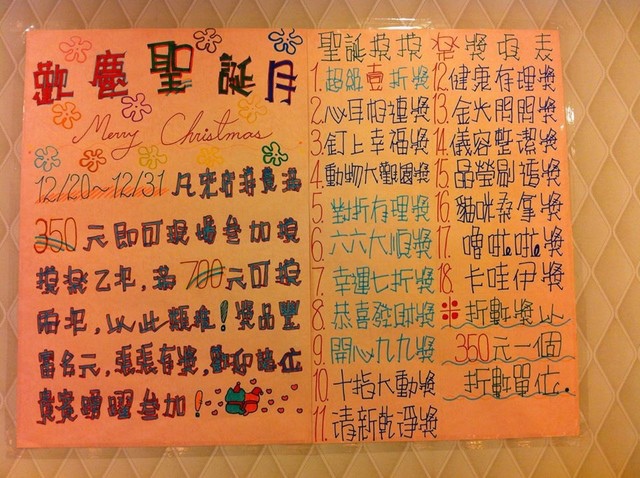 歡慶聖誕月
Merry Christmas
12/20~12/31 凡來店消費滿
350元即可現場參加摸
摸樂乙次,滿700元可摸
兩次,以此類推!獎品豐
富多元,張張有獎,歡迎諸位
貴賓踴躍參加!
聖誕摸摸樂獎項表
1.超級壹折獎
2.心耳相連獎
3.釘上幸福獎
4.動物大觀園獎
5.對折有理獎
6.六六大順獎
7.幸運七折獎
8.恭喜發財獎
9.開心九九獎
10.十指大動獎
11.清新乾淨獎
12.健康有理獎
13.金光閃閃獎
14.儀容整潔獎
15.晶瑩獎
16.貓咪桑拿獎
17.嚕啦啦獎
18.卡哇伊獎
※折數獎以
350元一個
折數單位.